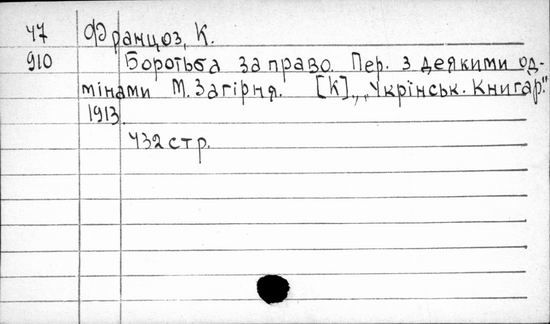 47 Францоз, К.
910 Боротьба за право. Пер. з деякими од-
мінами М. Загірня. [К]., „Укрінськ. Книгар."
1913.
432 стр.